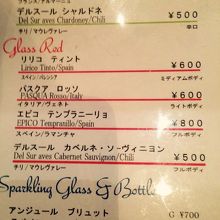 フランス/アルマーニュ
デルスール シャルドネ ¥500
Del Sur aves Chardoney/Chili 辛口
チリ/マウレヴァレー
Glass Red
リリコ ティント ¥600
Lirico Tinto/Spain ミディアムボディ
スペイン/バレンシア
パスクア ロッソ ¥600
PASQUA Rosso/Italy ライトボディ
イタリア/ヴェネト
エピコ テンプラニーリョ ¥800
EPICO Tempranillo/Spain フルボディ
スペイン/ラマンチャ
デルスール カベルネ・ソーヴィニオン ¥500
Del Sur aves Cabernet Sauvignon/Chili フルボディ
チリ/マウレヴァレー
Sparkling Glass & Bottle
アンジュール ブリュット G ¥700